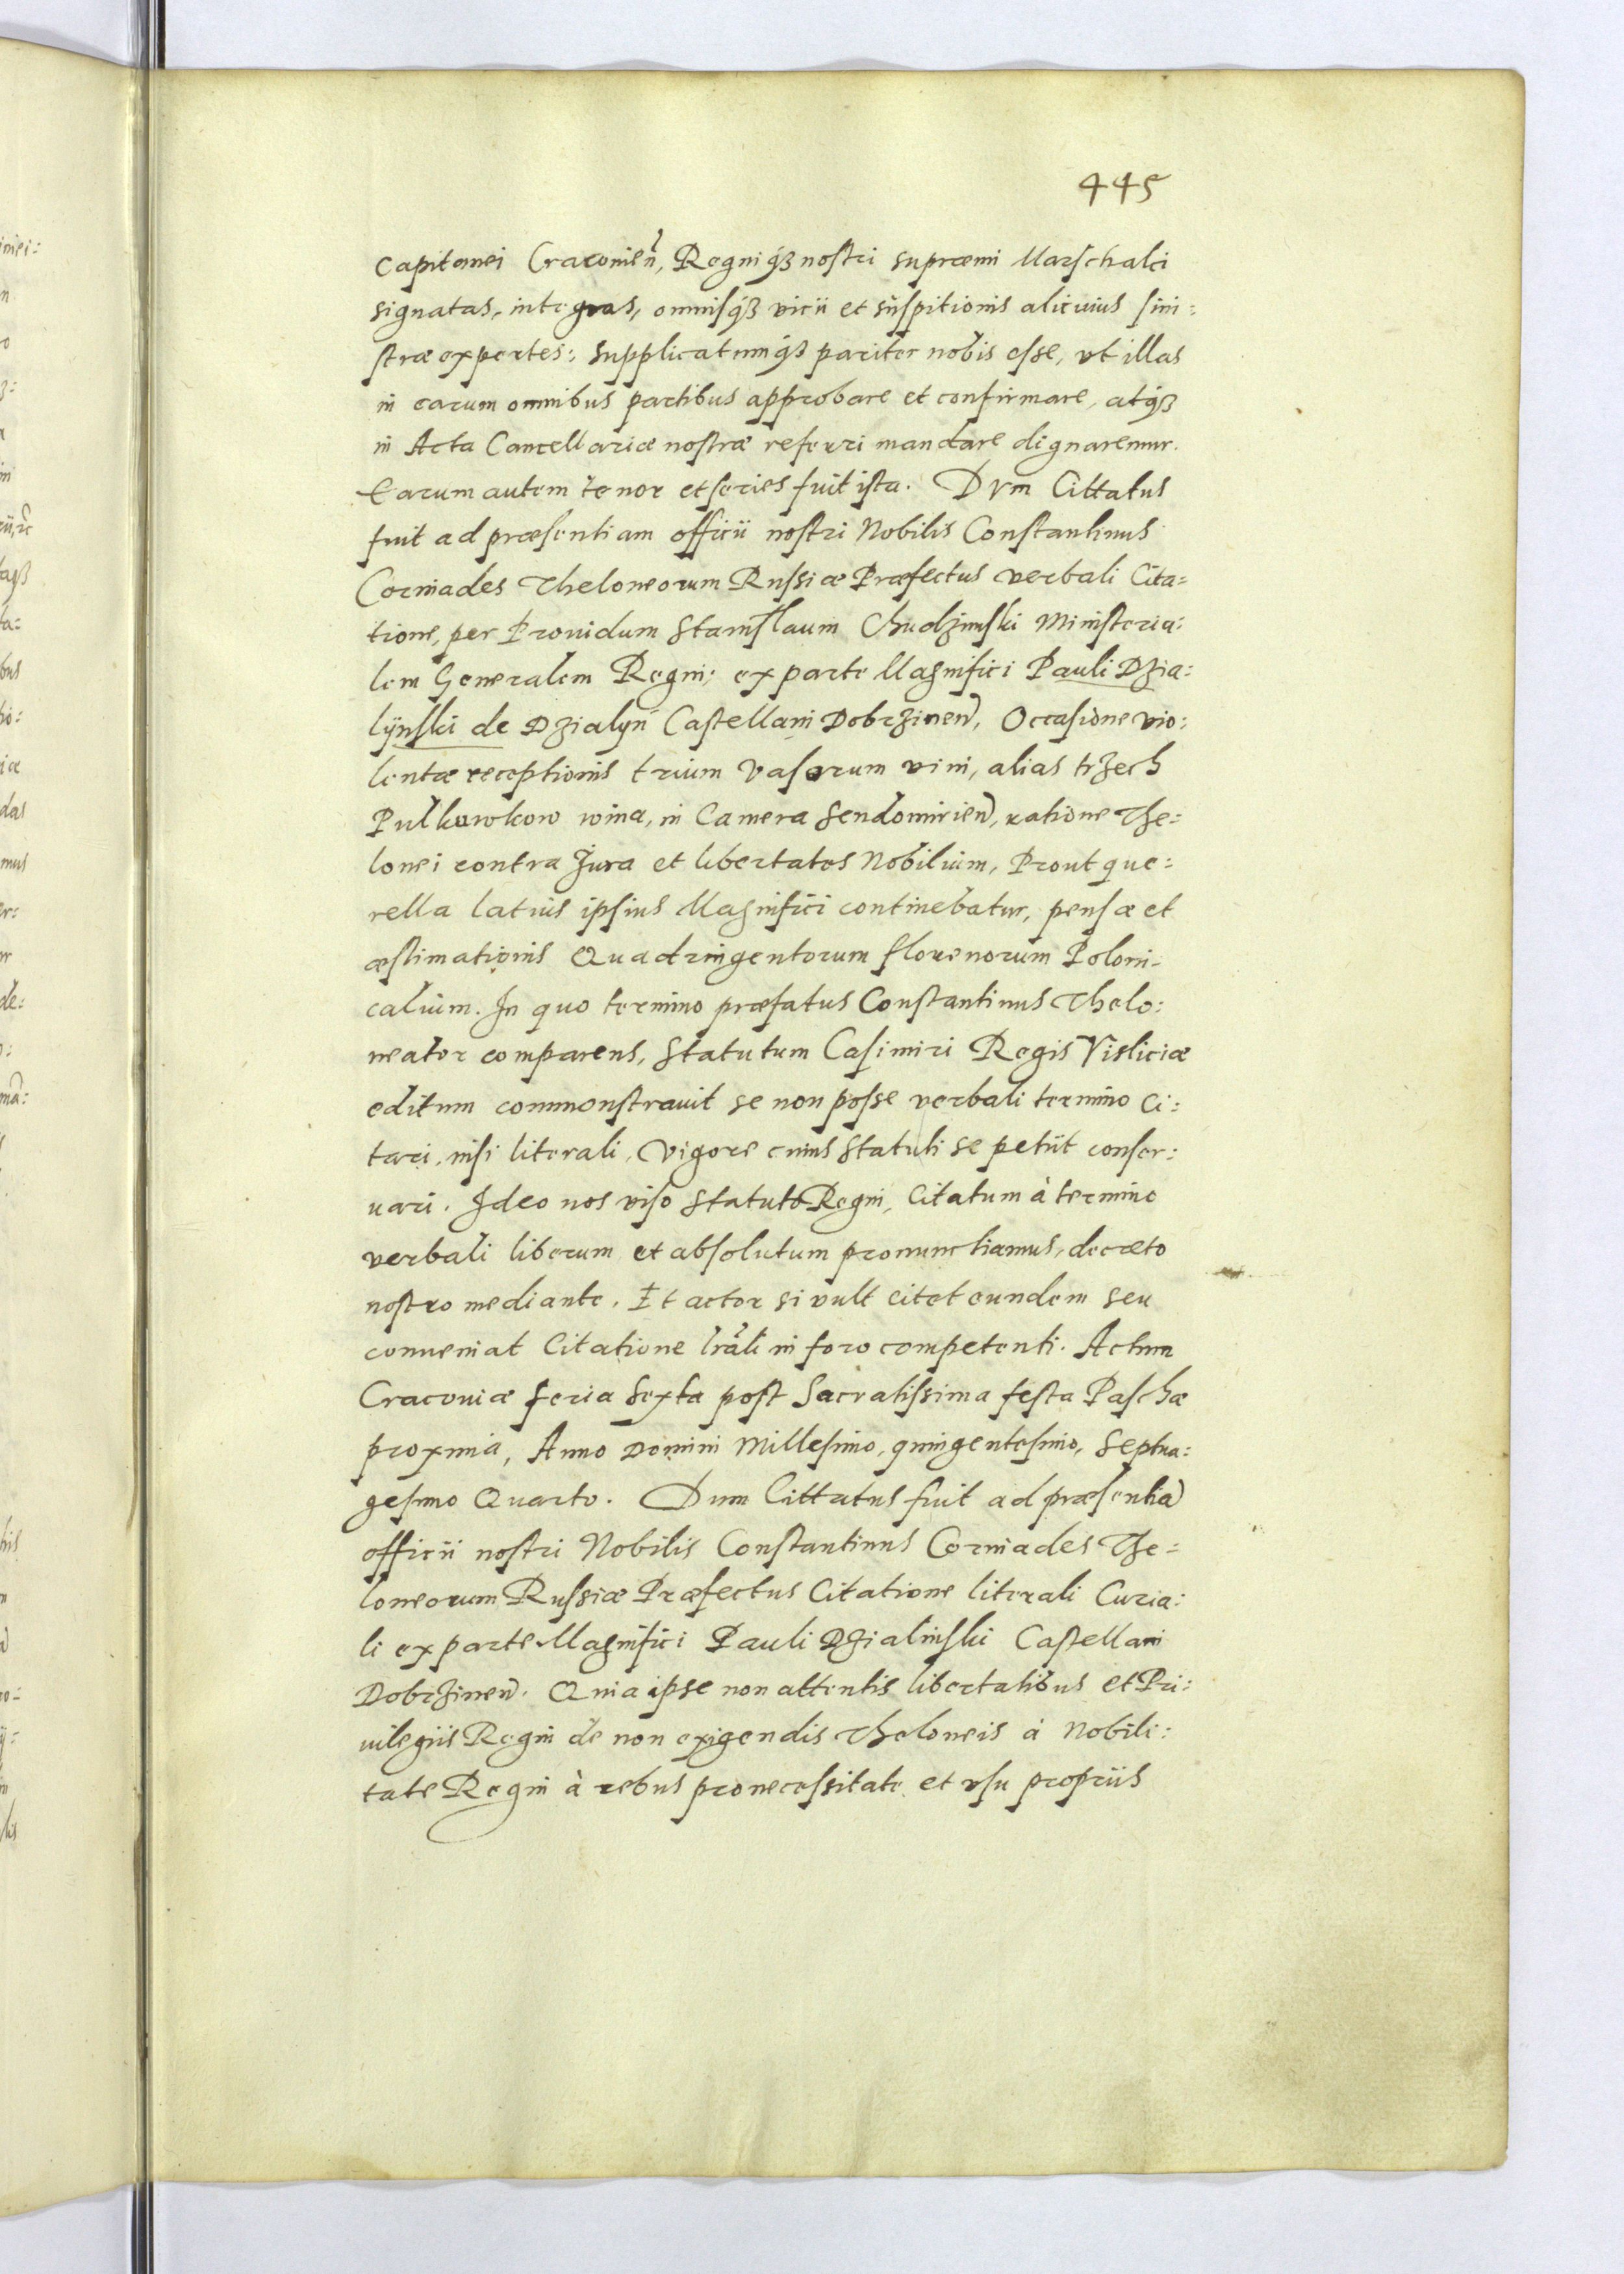 445
capitanei Cracovien, Regniq3 nostri supræmi Marschalci
signatas, integras, omnisq3 vicii et suspitionis alicuius sini:
stræ expertes: supplicatumq3 pariter nobis esse, vt illas
in earum omnibus partibus approbare et confirmare, atq3
in Acta Cancellariæ nostræ referri mandare dignaremur.
Earum autem tenor et series fuit ista. Dvm Cittatus
fuit ad præsentiam officii nostri Nobilis Constantinus
Corniades Theloneorum Russiæ Præfectus verbali Cita=
tione, per Prouidum Stanislaum Chudzinski Ministeria:
lem Generalem Regni; ex parte Magnifici Pauli Dzia:
lÿnski de Dzialyn Castellani Dobrzinen, Occasione vio:
lentæ receptionis trium Vasorum vini, alias trzech
Pulkuwkow wina, in Camera Sendomirien, ratione The:
lonei contra Jura et libertates Nobilium, Prout que:
rella latius ipsius Magnifici continebatur, pensæ et
æstimationis Quadringentorum florenorum Poloni-
calium. In quo termino præfatus Constantinus Thelo:
neator comparens, Statutum Casimiri Regis Visliciæ
editum commonstrauit se non posse verbali termino Ci:
tari, nisi literali, Vigore cuius Statuti se petiit conser:
uari. Ideo nos viso Statuto Regni, Citatum à termino
verbali liberum et absolutum pronunctiamus, decræto
nostro mediante. Et actor si vult citet eundem seu
conueniat Citatione lrali in foro competenti. Actum
Cracouiæ feria Sexta post Sacratissima festa Paschæ
proxima, Anno Domini Millesimo, quingentesimo, Septua:
gesimo Quarto. Dum Cittatus fuit ad præsentia
officii nostri Nobilis Constantinus Corniades The=
loneorum Russiæ Præfectus Citatione literali Curia:
li ex parte Magnifici Pauli Dzialinski Castellani
Dobrzinen. Quia ipse non attentis libertatibus et Pri:
uilegiis Regni de non exigendis Theloneis à Nobili:
tate Regni à rebus pro necessitate et vsu propriis